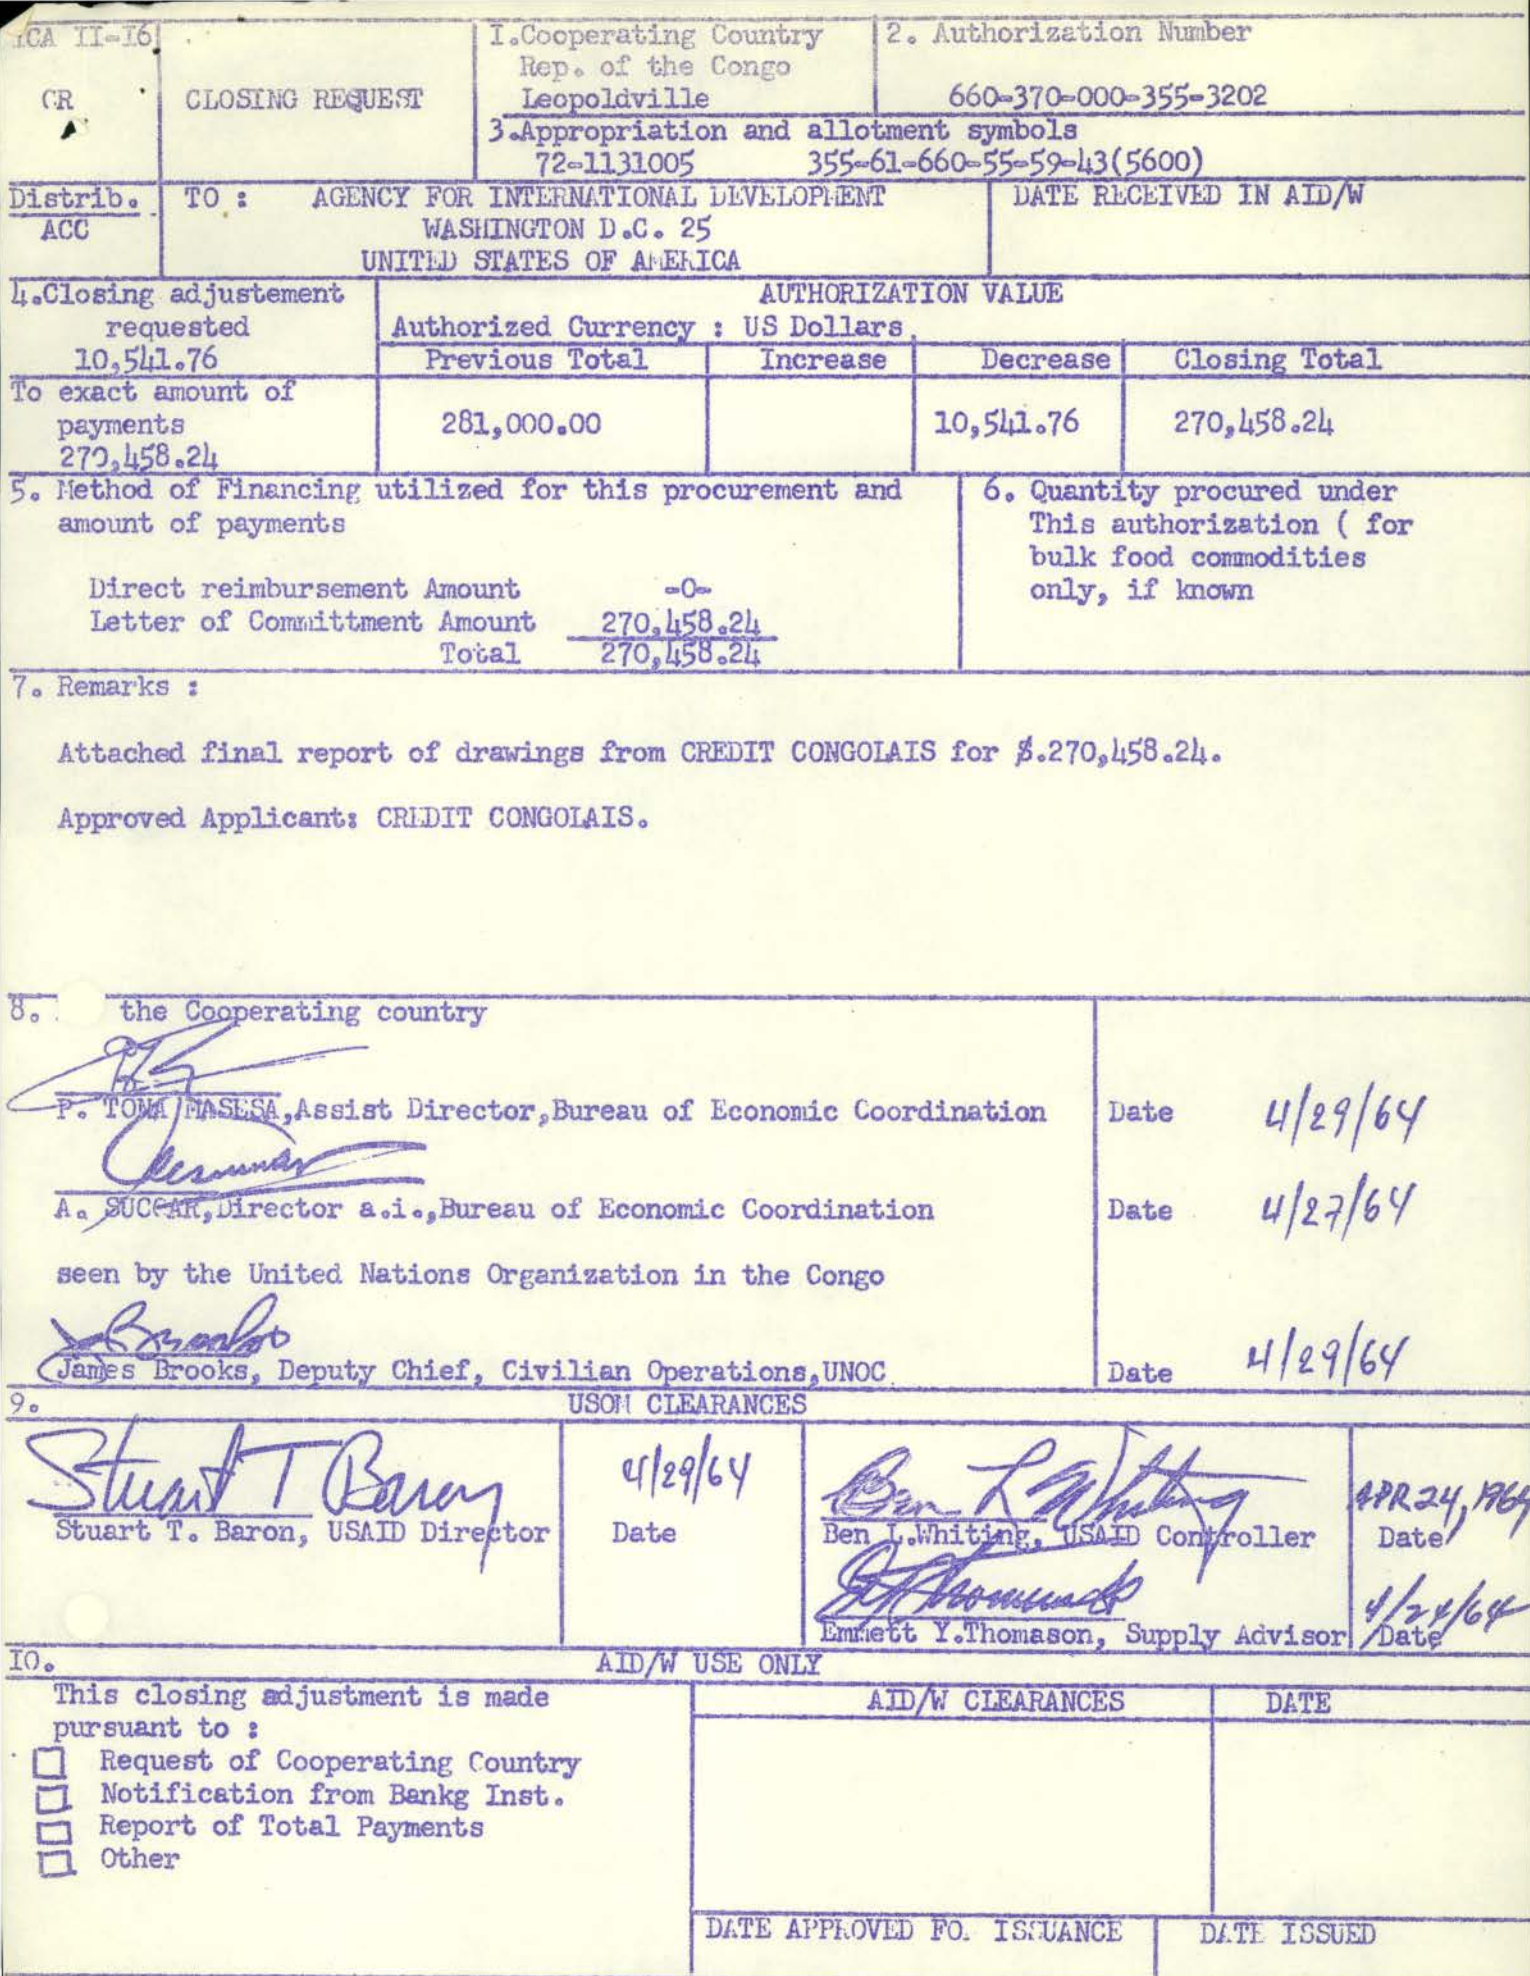 ICA II-I6
CR
CLOSING REQUEST
I.Cooperating Country
Rep. of the Congo
Leopoldville
2. Authorization Number
660-370-000-355-3202
3.Appropriation and allotment symbols
72-1131005 355-61-660-55-59-43(5600)
Distrib.
ACC
TO : AGENCY FOR INTERNATIONAL DEVELOPMENT
WASHINGTON D.C. 25
UNITED STATES OF AMERICA
DATE RECEIVED IN AID/W
4.Closing adjustement
requested
10,541.76
AUTHORIZATION VALUE
Authorized Currency : US Dollars
Previous Total Increase Decrease Closing Total
To exact amount of
payments
270,458.24
281,000.00 10,541.76 270,458.24
5. Method of Financing utilized for this procurement and
amount of payments
Direct reimbursement Amount -0-
Letter of Committment Amount 270,458.24
Total 270,458.24
6. Quantity procured under
This authorization ( for
bulk food commodities
only, if known
7. Remarks :
Attached final report of drawings from CREDIT CONGOLAIS for $.270,458.24.
Approved Applicant: CREDIT CONGOLAIS.
8. the Cooperating country
P. TOMA MASESA,Assist Director,Bureau of Economic Coordination Date 4/29/64
A. SUCCAR,Director a.i.,Bureau of Economic Coordination Date 4/27/64
seen by the United Nations Organization in the Congo
James Brooks, Deputy Chief, Civilian Operations,UNOC Date 4/29/64
9. USOM CLEARANCES
Stuart T Baron
Stuart T. Baron, USAID Director
4/29/64
Date
Ben L Whiting
Ben L.Whiting, USAID Controller
APR 24, 1964
Date
Emmett Y.Thomason, Supply Advisor
4/24/64
Date
IO. AID/W USE ONLY
This closing adjustment is made
pursuant to :
Request of Cooperating Country
Notification from Bankg Inst.
Report of Total Payments
Other
AID/W CLEARANCES DATE
DATE APPROVED FO. ISSUANCE DATE ISSUED